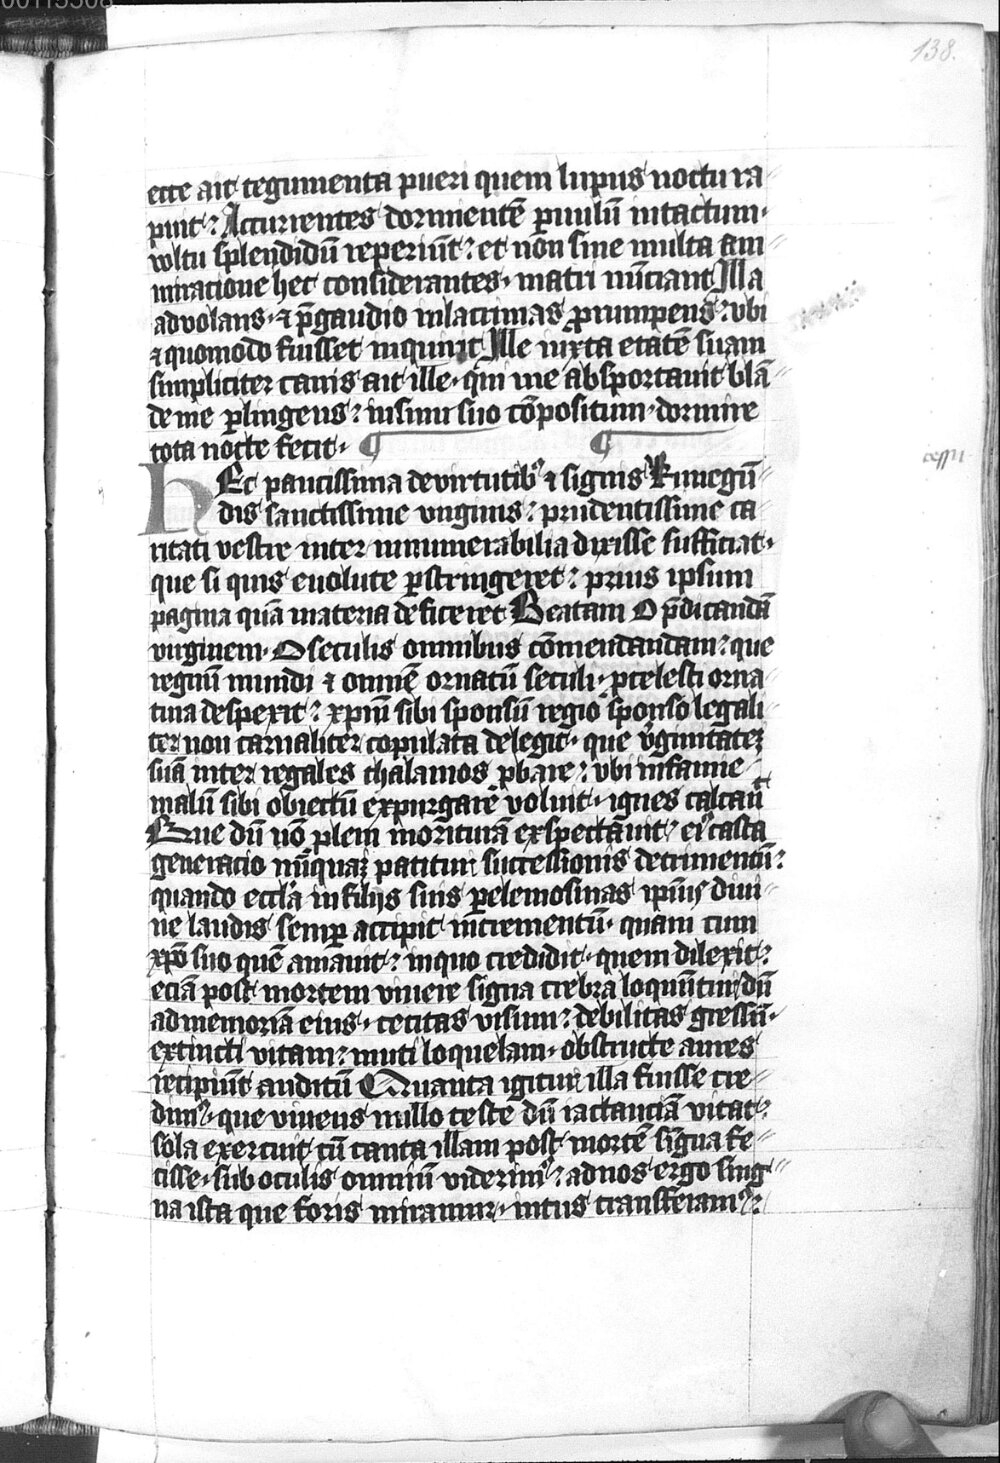 00115508
138.
ecce ait tegumenta pueri quem lupus noctu ra
puit? Accurrentes dormientē ꝑuulū intactum·
vvltu splendidū reperiūt? et non sine multa am
miratione hec considerantes· matri nūciant Illa
advolans· ⁊ p̄gaudio inlacrimas prumpens? vbi
⁊ quomodo fuisset inquirit Ille iuxta etatē suam
simpliciter canis ait ille· qui me absportauit blā
de me ꝑlingens? in sinu suo cōpositum· dormire
tota nocte fecit·
HEc paucissima de virtutibꝰ ⁊ signis Kunegū
dis sanctissime virginis? prudentissime ca
ritati vestre inter innumerabilia dixisse sufficiat·
que si quis euolute ꝑstringeret? prius ipsum
pagina quā materia deficeret Beatam O p̄dicandā
virginem· O seculis omnibus cōmendandam? que
regnū mundi ⁊ omnē ornatū seculi· celesti orna
tura despexit? xpm̄ sibi sponsū regio sponso legali
ter non carnaliter copulata delegit· que v̓ginitatē
suā inter regales thalamos ꝓbare? vbi infamie
malū sibi obiectū expurgare voluit· ignes calcauit
Que dū nō plem morituram exspectauit? eiꝰ casta
generacio nūquaꝫ patitur successionis detrimentū?
quando eccl̄a in filijs suis ꝑ elemosinas ip̄iꝰ diui
ne laudis semꝑ accipit incrementū· quam cum
xp̄o suo quē amauit? in quo credidit· quem dilexit?
eciā post mortem viuere signa crebra loquūtur dū
ad memoriā eius· cecitas visum? debilitas gressū·
extincti vitam? muti loquelam· obstructe aures
recipiūt auditū Quanta igitur illa fuisse cre
dimꝰ· que viuens nullo teste dū iactanciā vitat?
sola exercuit cū tanta illam post mortē signa fe
cisse· sub oculis omniū viderimꝰ? ad nos ergo sing
na ista que foris miramur· intus transferamꝰ?